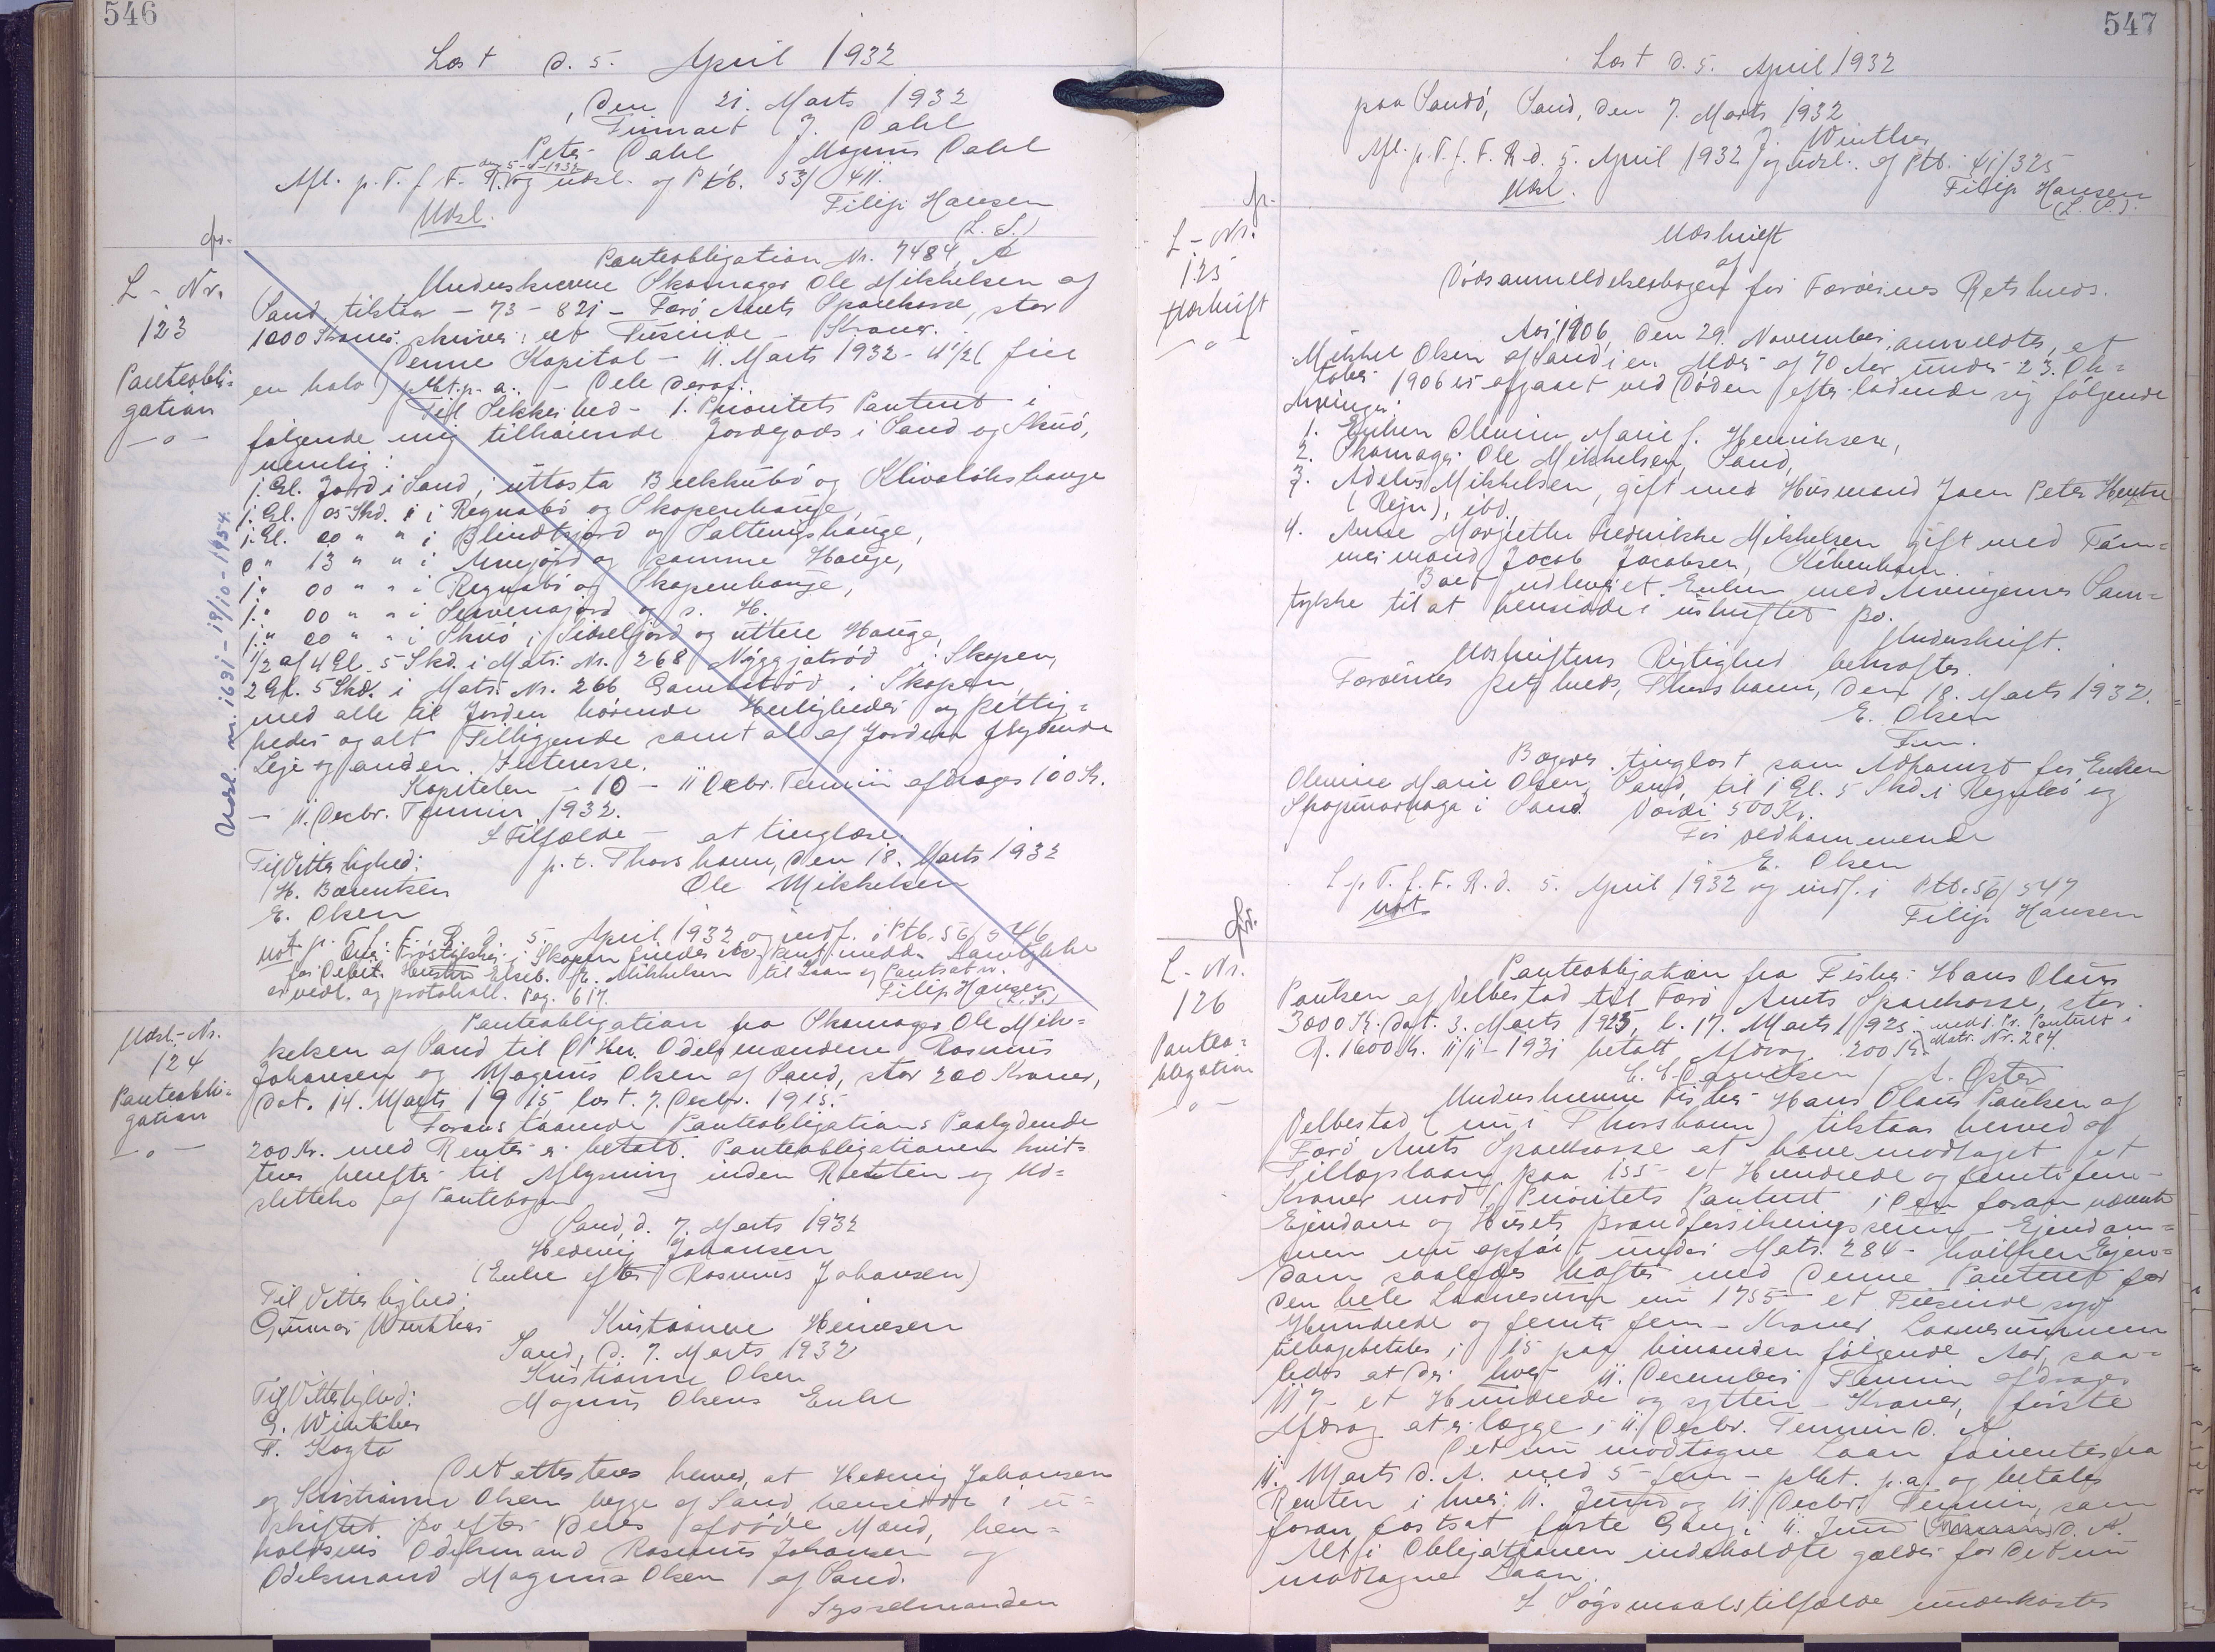 546
Læst d. 5. April 1932
Den 21. Marts 1932
J. Dahl
Peter Dahl, Magnus Dahl
den 5-4-1932
Afl. p. T. f. F. R. og udsl. af Ptb. 53/411.
Udsl. Filip Hansen
(L. S.)
L-Nr.
123
Panteobli=
gation
— o —
Udsl. m. 1631 - 19/10 - 1954.
Panteobligation Nr. 7484, A
Underskrevne Skomager Ole Mikkelsen af
Sand, tilstaar - 73 - 821 - Færø Amts Sparekasse, stor
1000 Kroner skriver: et Tusinde - Kroner.
Denne Kapital - 11. Marts 1932 - 4 1/2 ( fire
en halv ) pCt. p. a. - Dele deraf.
Til Sikkerhed - 1. Prioritets Panteret i
følgende mig tilhørende Jordegods i Sand og Skuø,
nemlig:
1. Gl. Jord i Sand, i uttasta og
1. Gl. 05 Skd. i Regnabø og Skopenhauge,
1. Gl. 00 " " i og Salteingshauge,
0 " 13 " " i og samme Hauge,
1 " 00 " " i Regnabø og Skopenhauge,
1 " 00 " " i og s. H.
1 " 00 " " i Skuø, i og uttere Hauge,
1/2 af 4 Gl. 5 Skd. i Matr. Nr. 268 i Skopen,
2 Gl. 5 Skd. i Matr. Nr. 266 i Skopen,
med alle til Jorden hørende Herligheder og Rettig=
heder og alt Tilliggende samt al af Jorden flydende
Leje og anden Interesse.
Kapitalen - 10 - 11 Decbr. Termin afdrages 100 Kr.
- 11. Decbr. Termin 1932.
I Tilfælde - at tinglæse.
Til Vitterlighed: p. t. Thorshavn, den 18. Marts 1932
H. Bærentsen Ole Mikkelsen
E. Olsen
L. p. T. f. F. R. d. 5. April 1932 og indf. i Ptb. 56/546
i Skopen findes Samtykke
for Debit. Hustru Elseb. Mikkelsen til Laan og Pantsætn.
er vedl. og protokoll. Pag. 617. Filip Hansen
(L. S.)
Udsl.-Nr.
124
Panteobli=
gation
— o —
Panteobligation fra Skomager Ole Mik=
kelsen af Sand til D'Hrr. Odelsmændene Rasmus
Johansen og Magnus Olsen af Sand, stor 200 Kroner,
dat. 14. Marts 1915, læst. 7. Decbr. 1915.
Foranstaaende Panteobligations Paalydende
200 Kr. med Renter er betalt. Panteobligationen kvit=
teres herefter til Aflysning inden Retten og Ud=
slettelse af Pantebogen
Sand, d. 7. Marts 1932
Hedevig Johansen
(Enke efter Rasmus Johansen)
Til Vitterlighed:
Gunnar Winther Kristianne Heinesen
Sand, d. 7. Marts 1932
Kristianne Olsen
Til Vitterlighed: Magnus Olsens Enke
G. Winther
Det attesteres herved, at Hedevig Johansen
og Kristianne Olsen begge af Sand, hensidde i u=
skiftet Bo efter deres afdøde Mænd, hen=
holdsvis Odelsmand Rasmus Johansen og
Odelsmand Magnus Olsen af Sand.
Sysselmanden
547
Læst d. 5. April 1932
paa Sandø, Sand, den 7. Marts 1932
J. Winther
Afl. p. T. f. F. R. d. 5. April 1932 og udsl. af Ptb. 41/325
Udsl. Filip Hansen
(L. S.)
L-Nr.
125
Udskrift
— o —
Udskrift
af
Dødsanmeldelsesbogen for Færøernes Retskreds.
Aar 1906, den 29. November, anmeldtes, at
Mikkel Olsen af Sand i en Alder af 70 Aar under 23. Ok=
tober 1906 er afgaaet ved Døden efterladende sig følgende
Arvinger:
1. Enken Olevine Marie f. Henriksen,
2. Skomager Ole Mikkelsen, Sand,
3. Adelus Mikkelsen, gift med Husmand Joen Peter
(Rejn), ibd.,
4. Anne Margrethe Frederikke Mikkelsen gift med Tøm=
mermand Jacob Jacobsen, København.
Boet udleveret Enken med Arvingernes Sam=
tykke til at hensidde i uskiftet Bo.
Underskrift.
Udskriftens Rigtighed bekræftes.
Færøernes Retskreds, Thorshavn, den 18. Marts 1932.
E. Olsen
Fm.
Begæres tinglæst som Adkomst for Enken
Olevine Marie Olsen, Sand, til 1 Gl. 5 Skd. i Regnabø og
i Sand. Værdi 500 Kr.
For vedkommende
E. Olsen
L. p. T. f. F. R. d. 5. April 1932 og indf. i Ptb. 56/547
Filip Hansen
L-Nr.
126
Panteo=
bligation
— o —
Panteobligation fra Fisker Hans Olaus
Poulsen af Velbestad til Færø Amts Sparekasse, stor
3000 Kr. dat. 3. Marts 1925, l. 17. Marts 1925 med 1. Pr. Panteret i
R. 1600 Kr. 11/11 - 1931 betalt Afdrag 200 Kr. Matr. Nr. 284.
C. C. Danielsen / A.
Underskrevne Fisker Hans Olaus Poulsen af
Velbestad (nu i Thorshavn) tilstaar herved af
Færø Amts Sparekasse at have modtaget et
Tillægslaan paa 155 - et Hundrede og femti fem -
Kroner mod 1. Prioritets Panteret i den foran nævnte
Ejendom og Husets Brandforsikringssum - Ejendom=
men nu opført under Matr. 284 - hvilken Ejen=
dom saaledes hæfter med denne Panteret for
den hele Laanesum nu 1755 - et Tusinde syv
Hundrede og femti fem - Kroner. Laanesummen
tilbagebetales i 15 paa hinanden følgende Aar, saa=
ledes at der hver 11. December Termin afdrages
117 - et Hundrede og sytten - Kroner, første
Afdrag at erlægge i 11. Decbr. Termin d. A.
Det nu modtagne Laan forrentes fra
11. Marts d. A. med 5 - fem - pCt. p. a. og betales
Renten i hver 11. Juni og 11. Decbr. Termin, som
foran fastsat første Gang i 11. Juni d. A.
Alt i Obligationen indeholdte gælder for det nu
modtagne Laan.
I Søgsmaalstilfælde underkastes